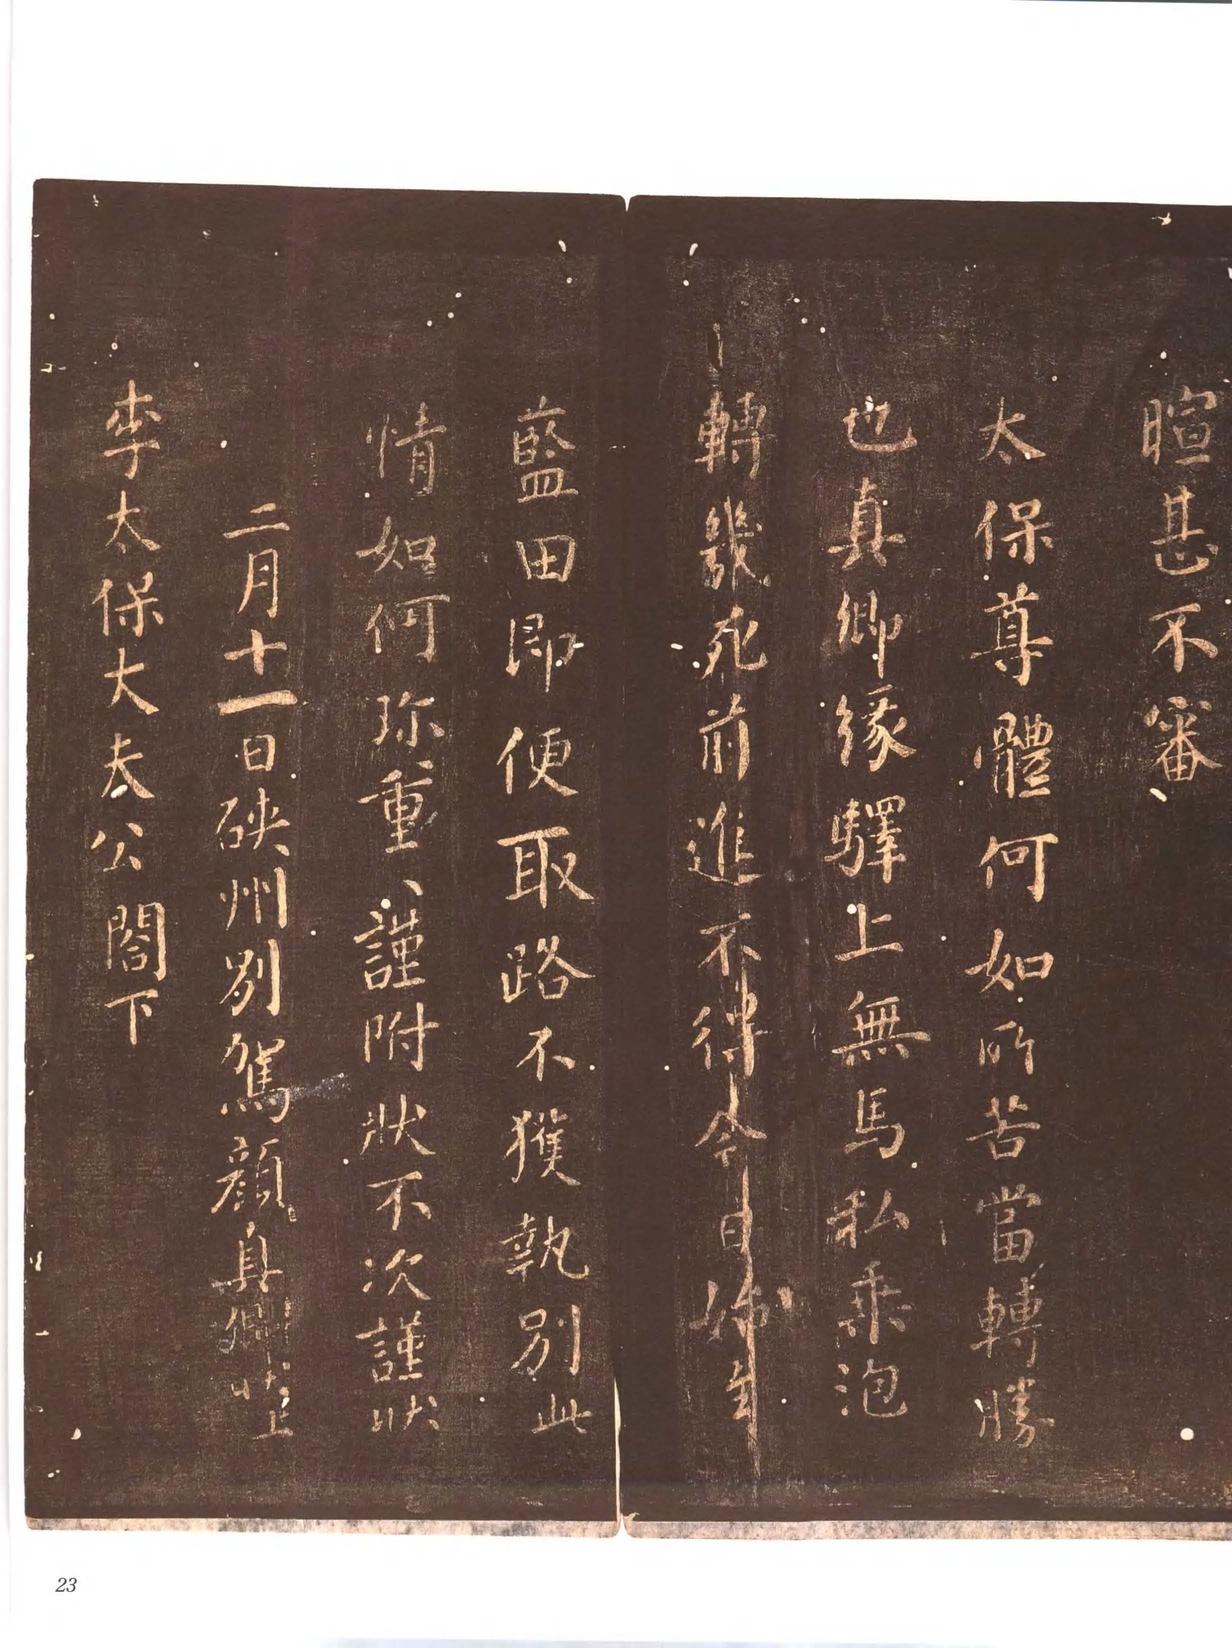 暄甚不審
太保尊體何如所苦當轉勝
也真卿緣驛上無馬私乘泡
轉幾死前進不得今日始至
藍田即便取路不獲執別此
情如何珎重、謹附狀不次謹狀
二月十一日硤州別駕顏真卿狀上
李太保大夫公閤下
23